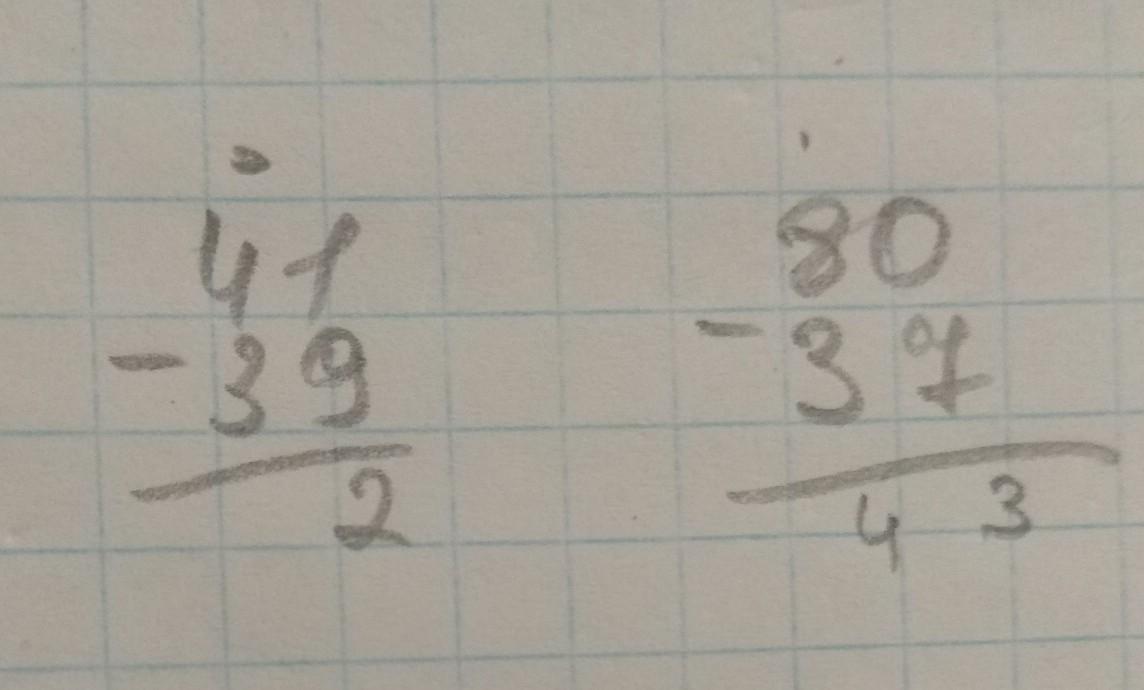 41 80
- 39 - 37
2 43